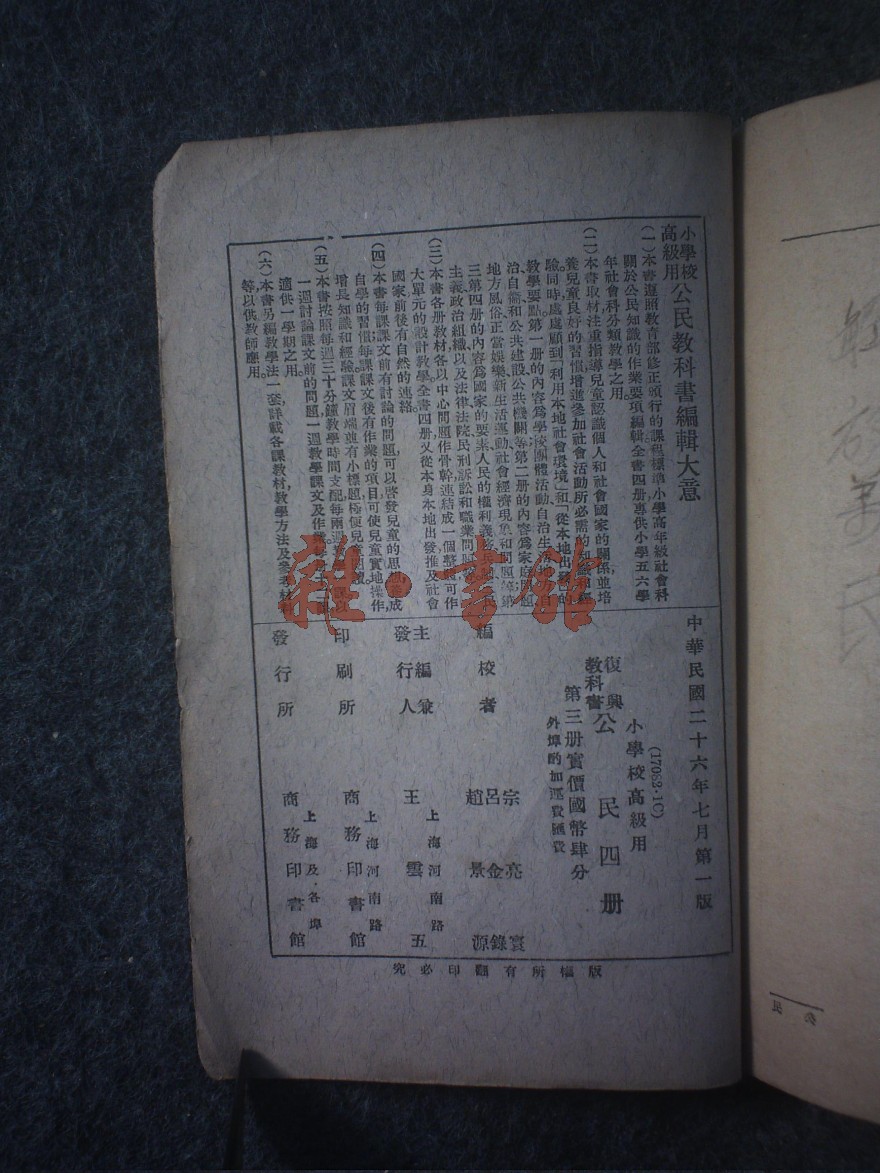 小學校高級用 公民教科書編輯大意
(一)本書遵照教育部修正頒行的課程標準小學高年級社會科
關於公民知識的作業要項編輯全書四册專供小學五六學
年社會科分類教學之用。
(二)本書取材注重指導兒童認識個人和社會國家的關係並培
養兒童良好的習慣增進參加社會活動所必需的知識和經
驗同時處處顧到「利用本地社會環境」和「從本地出發」的
教學要點第一册的內容爲學校團體活動自治生
治自衞和公共建設公共機關等第二册的內容爲家庭問題
地方風俗正當娛樂新生活運動社會經濟現象和問題等第
三第四册的內容爲國家的要素人民的權利義
主義政治組織以及法律法院民刑訴訟和職業問題
(三)本書各册教材各以中心問題作骨幹連結成一個整 可作
大單元的設計教學全書四册又從本身本地出發推及社會
國家前後有自然的連絡。
(四)本書每課課文前有討論的問題可以啓發兒童的思想 成
自學的習慣每課課文後有作業的項目可使兒童實地操作
增長知識和經驗課文眉端並有小標題極便兒童
(五)本書按照每週三十分鐘教學時間支配每兩週
一週討論課文前的問題一週教學課文及作業
適供一學期之用。
(六)本書另編教學法一套詳載各課教材教學方法及參考材料
等以供教師應用。
中華民國二十六年七月第一版
(17082·1C)
小學校高級用
復興教科書 公民四册
第三册實價國幣肆分
外埠酌加運費匯費
編校者 宗亮寰 呂金錄 趙景源
主編兼發行人 上海河南路 王雲五
印刷所 上海河南路 商務印書館
發行所 上海及各埠 商務印書館
版權所有翻印必究
雜·書館